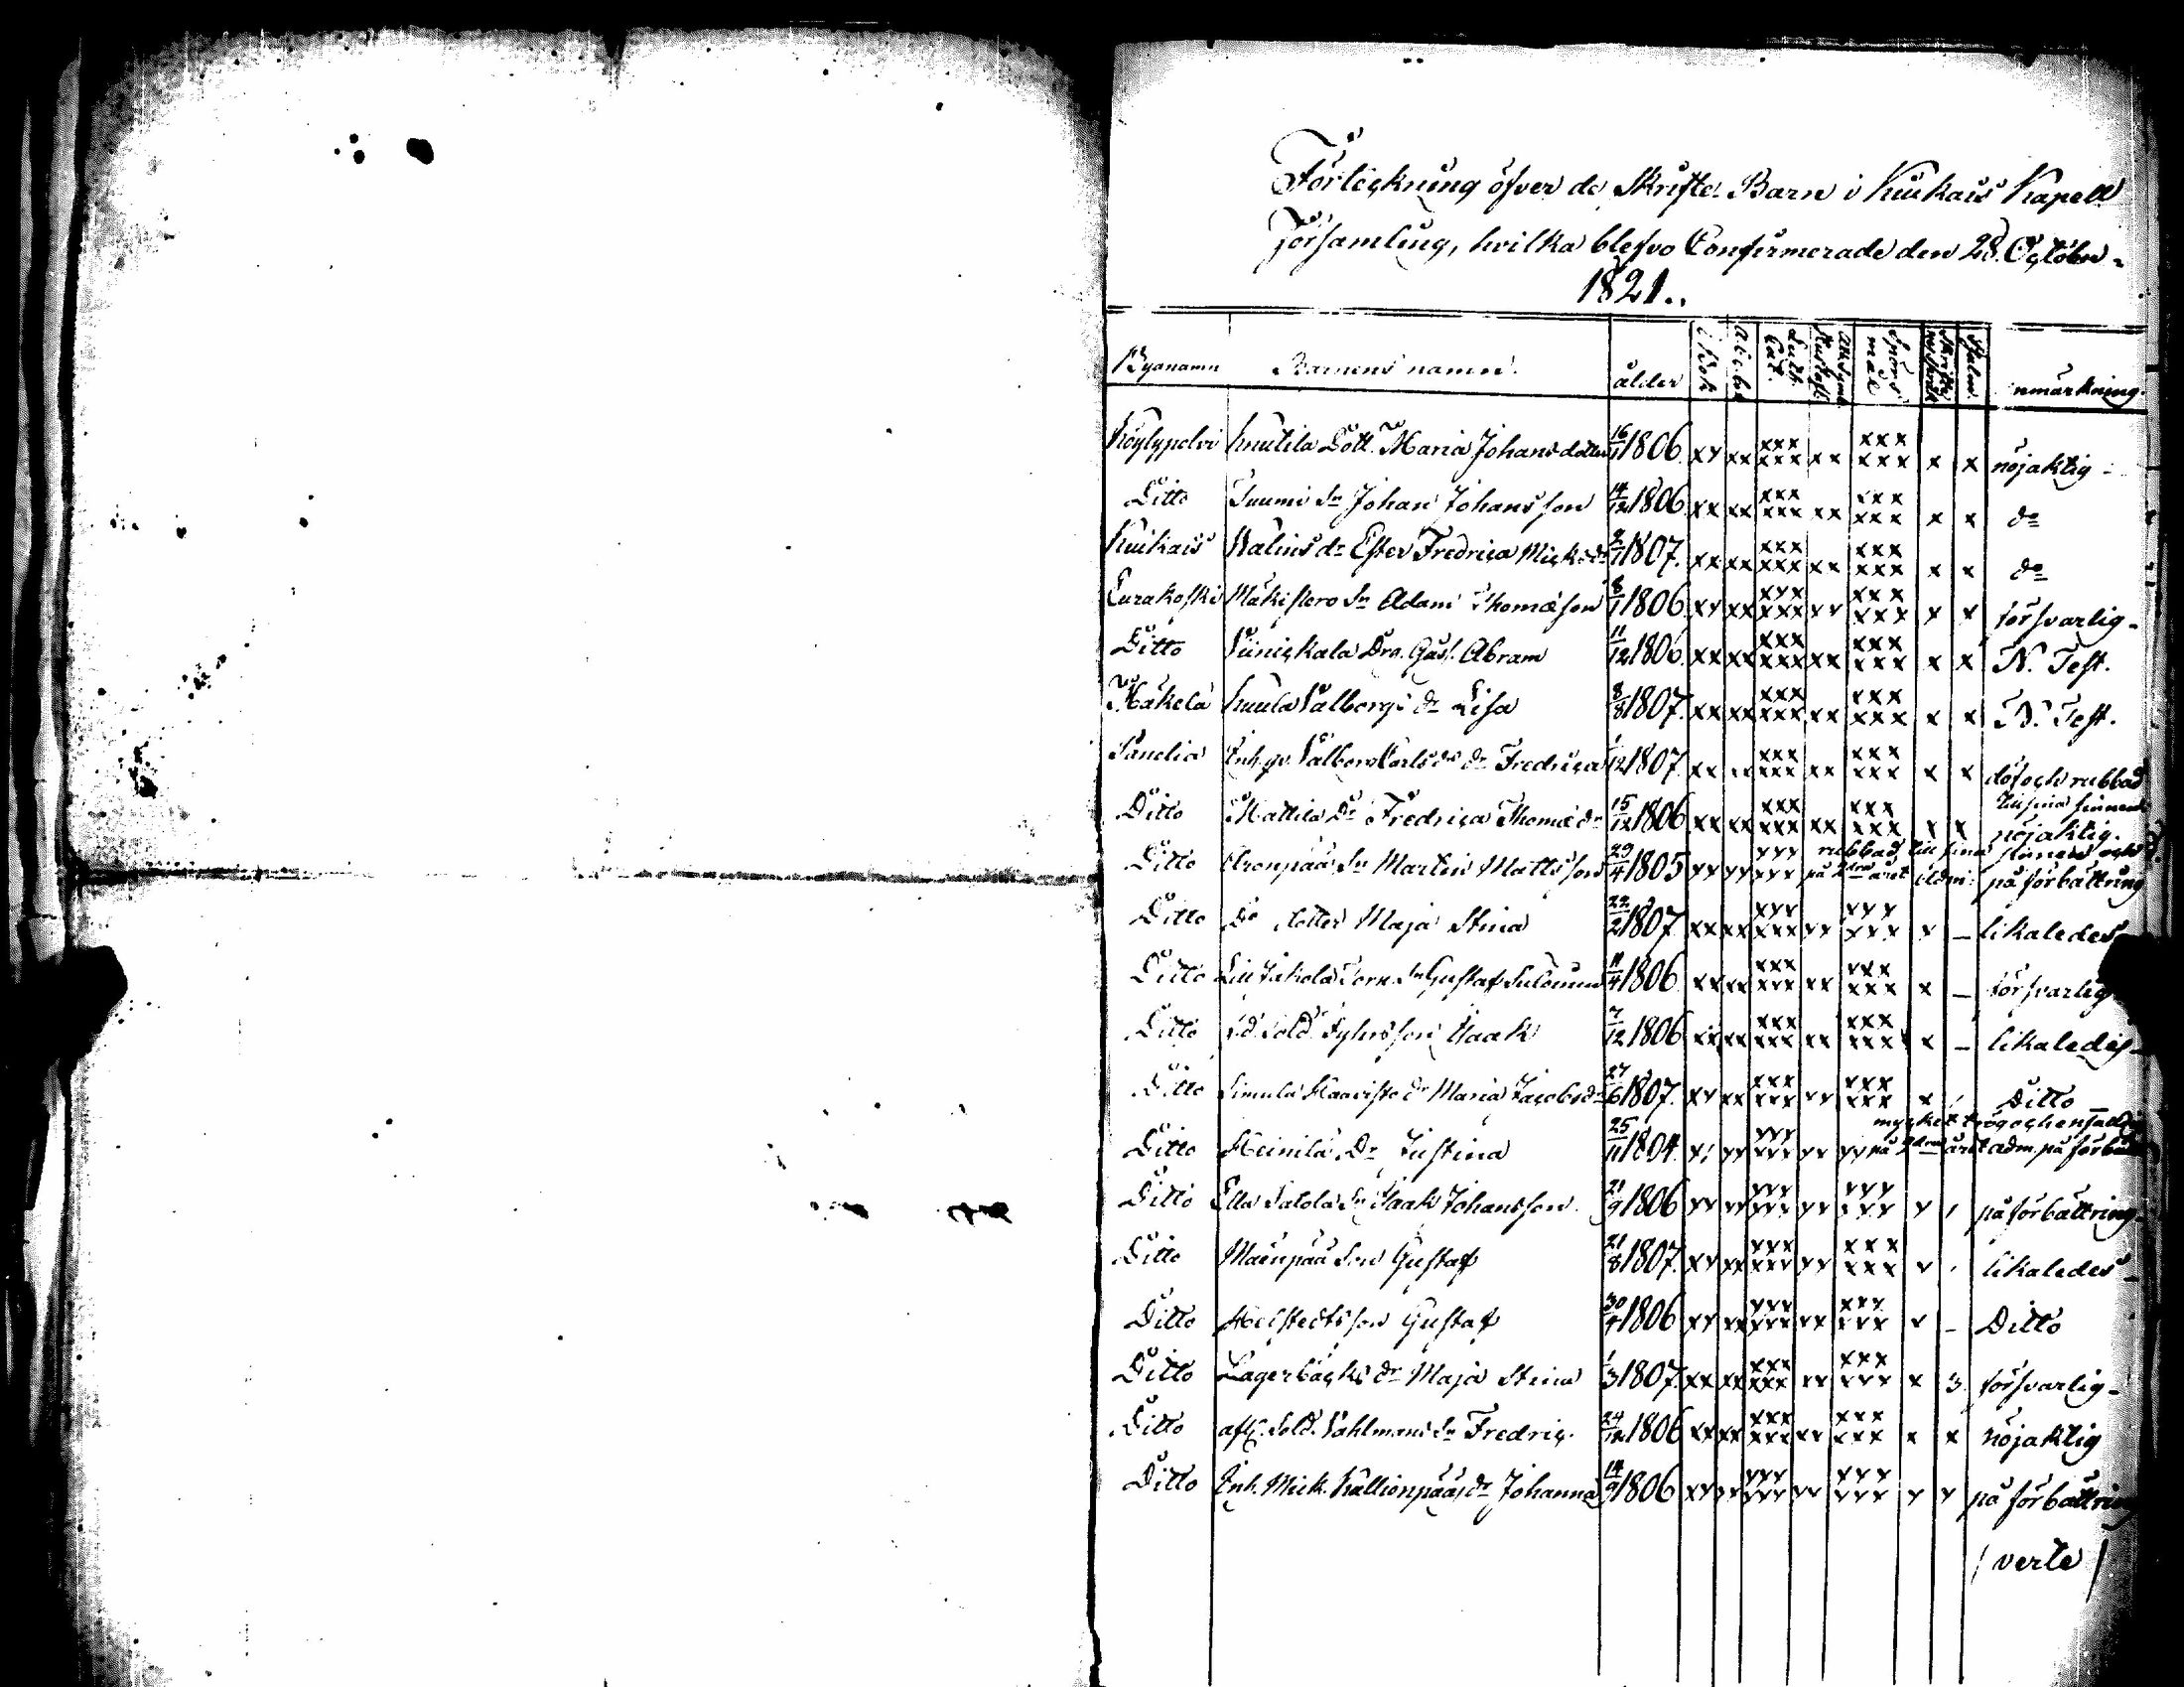 Förteckning öfver de Skrifte-Barn i Kiukais Kapell
Församling, hvilka blefvo Confirmerade den 28. Octobr.
1821..
Byanamn Barnens namn. ålder i Bok A.b.c. bok Luth. Cat. Spörsmål Psalm. nmärkning.
Köylypolvi Knutila Dott. Maria Johansdotter 16/1 1806. xx xx xxx xxx xx xxx xxx x x nöjaktig -
Ditto Suumi Sn Johan Johansson 14/12 1806. xx xx xxx xxx xx xxx xxx x x do
Kiukais Walins dr Ester Fredrica Micksdr 1807. xx xx xxx xxx xx xxx xxx x x do
Eurakoski Mäkistero Sn Adam Thomæson 8/1 1806. xx xx xxx xxx xx xxx xxx x x försvarlig -
Ditto Vinickala Dra. Gust. Abram 11/12 1806. xx xx xxx xxx xx xxx xxx x x N. Test.
Häkelä Knula Valborgs dr Lisa 8/8 1807. xx xx xxx xxx xx xxx xxx x x N. Test.
Panelia Enk. Valborg Carlsdr dr Fredrica 1/12 1807. xx xx xxx xxx xx xxx xxx x x döf och rubbad
till sina sinnen
Ditto Mattila Dr Fredrica Thomædr 15/12 1806 xx xx xxx xxx xx xxx xxx x x nöjaktig.
Ditto Aronpää Sn Martin Mattsson 29/4 1805 xx xx xxx xxx rubbad till sina sinnen och
på 2dra året adm: på förbättring
Ditto Do dotter Maja Stina 22/2 1807. xx xx xxx xxx xx xxx xxx x _ likaledes
Ditto Lill Jakola Torp. Sn Gustaf Salomon 11/4 1806 xx xx xxx xxx xx xxx xxx x _ försvarlig
Ditto Sold. Isaak 7/12 1806 xx xx xxx xxx xx xxx xxx x _ likaledes -
Ditto Simula Haavisto dr Maria Jacobsdr 27/6 1807. xx xx xxx xxx xx xxx xxx x Ditto _
mycket trög och enfaldig
Ditto Heinilä Dr Justina 25/11 1804. xx xxx xxx xx på 2dra året adm. på förbätt
Ditto Ella Satola Sn Isaak Johansson. 21/9 1806 xx xx xxx xxx xx xxx xxx x på förbättring
Ditto Mäenpää Son Gustaf 21/8 1807. xx xx xxx xxx xx xxx xxx x likaledes -
Ditto Helstedts son Gustaf 30/4 1806 xx xx xxx xxx xx xxx xxx x _ Ditto
Ditto Lagerbäcks dr Maja Stina 1/3 1807. xx xx xxx xxx xx xxx xxx x 3 försvarlig -
Ditto afsk. Sold. Vahlmans Sn Fredric. 24/12 1806 xx xx xxx xxx xx xxx xxx x x nöjaktig
Ditto Enk. Mick. Kallionpää, dr Johanna 1806 xx xx xxx xxx xx xxx xxx x x på förbättring
/ verte /